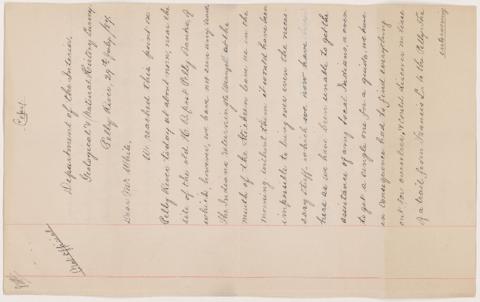 Copy.
Department of the Interior,
Geological & Natural History Survey
Pelly River, 29th July, 1887.
Dear Mr White,
We reached this point on
Pelly River today at about noon, near the
site of the old H. B. post Pelly Banks, of
which, however, we have not seen any sign
The Indians interviewing to Wrangell at the
mouth of the Stickeen leave us in the
morning without them it would have been
impossible to bring over even the neces-
sary stuff which we now have
here as we have been unable to get the
assistance of any local Indians, or even
to get a single one for a guide, we have
in consequence had to find everything
out for ourselves, & could discover no trace
of a trail from Frances L. to the Pelly. The
Not Official